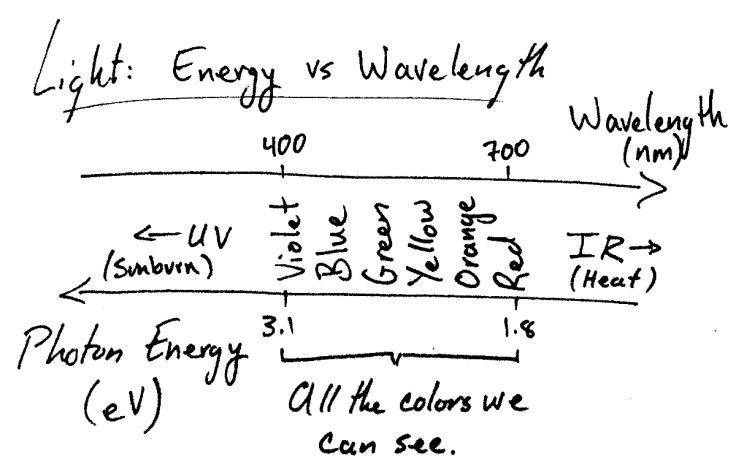 Light: Energy vs Wavelength
Wavelength
(nm)
400 700
← UV Violet Blue Green Yellow Orange Red IR →
(Sunburn) (Heat)
3.1 1.8
Photon Energy
(eV)
All the colors we
can see.